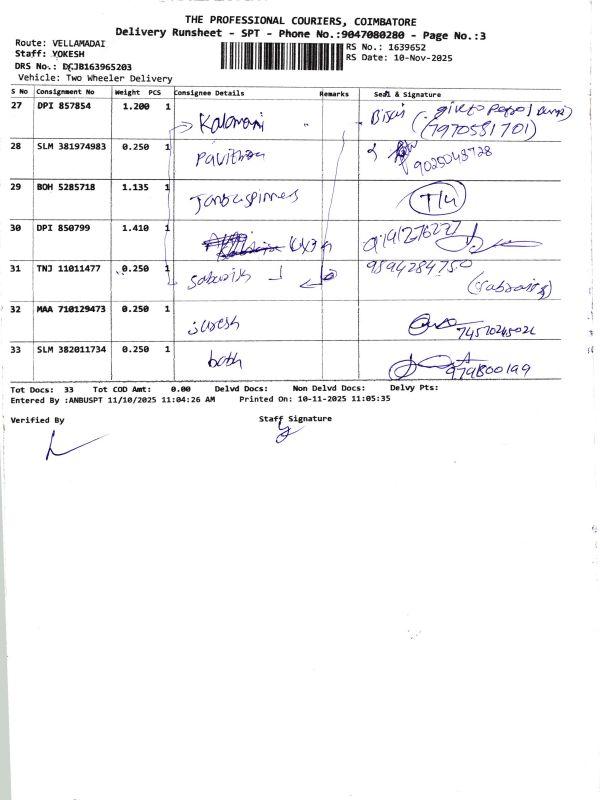 THE PROFESSIONAL COURIERS, COIMBATORE
Delivery Runsheet - SPT - Phone No.:9047080280 - Page No.:3
Route: VELLAMADAI
Staff: YOKESH
RS No.: 1639652
DRS No.: DCJB163965203
RS Date: 10-Nov-2025
Vehicle: Two Wheeler Delivery
S No Consignment No Weight PCS Consignee Details Remarks Seal & Signature
27 DPI 857854 1.200 1 Kalamani
(7970551701)
28 SLM 381974983 0.250 1 Pavithra 9025043728
29 BOH 5285718 1.135 1
30 DPI 850799 1.410 1
31 TNJ 11011477 0.250 1 9594284750
32 MAA 710129473 0.250 1 suresh
33 SLM 382011734 0.250 1 both 979800199
Tot Docs: 33 Tot COD Amt: 0.00 Delvd Docs: Non Delvd Docs: Delvy Pts:
Entered By :ANBUSPT 11/10/2025 11:04:26 AM Printed On: 10-11-2025 11:05:35
Verified By Staff Signature